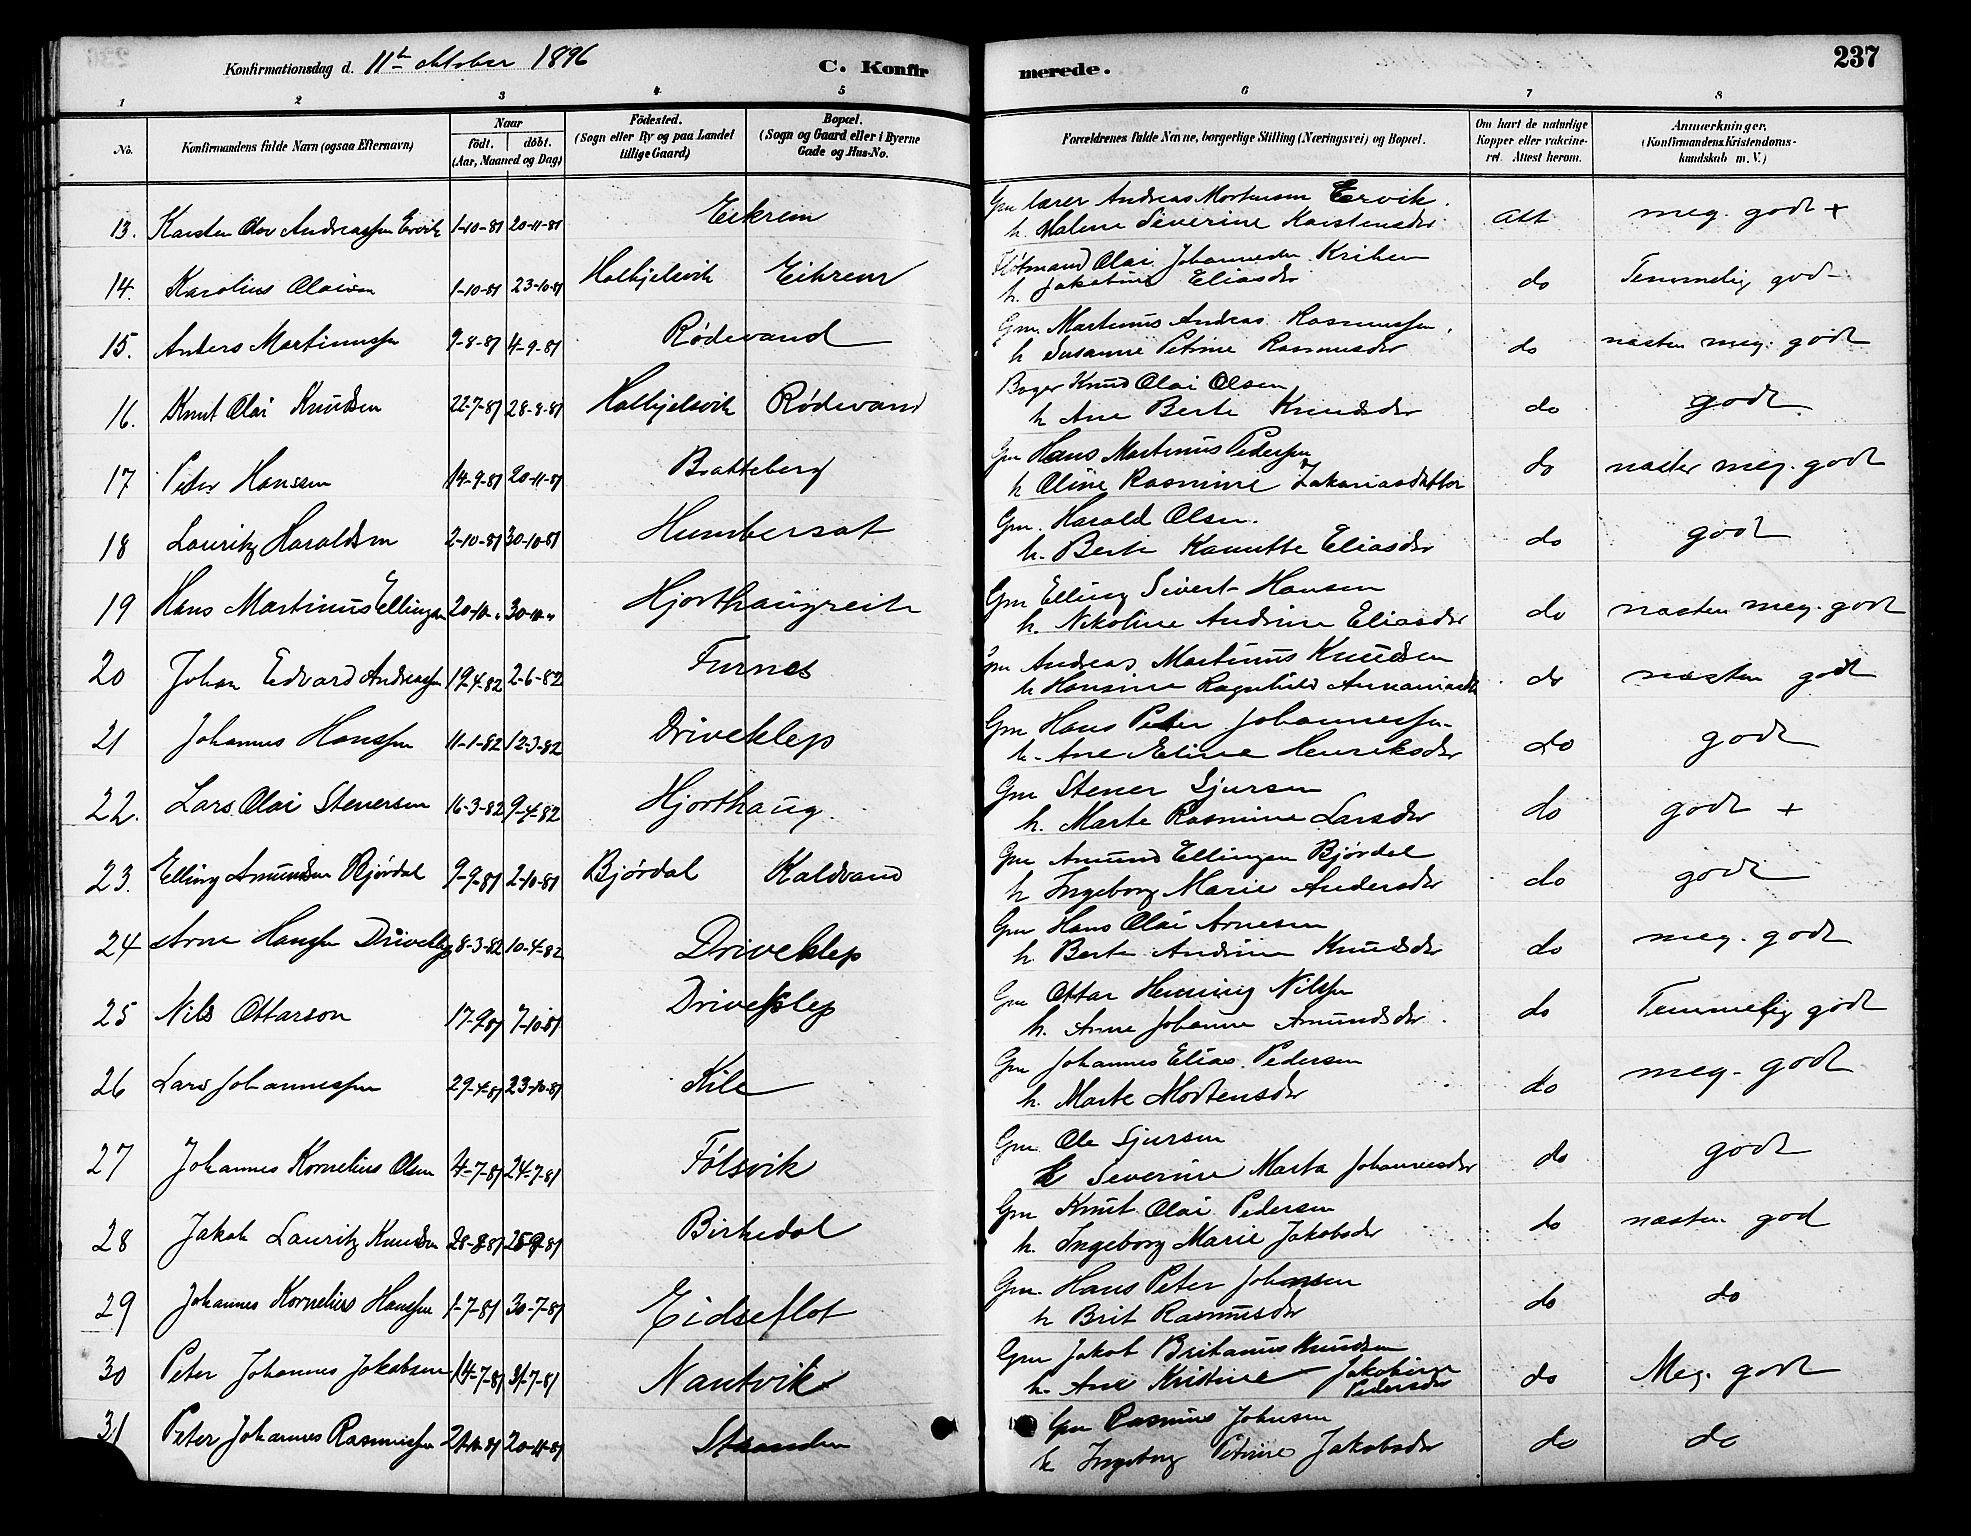 237
Konfirmationsdag d. 11te oktober 1896
C. Konfirmerede.
1 2 3 4 5 6 7 8
No. Konfirmandens fulde Navn (ogsaa Efternavn) Naar födt. döbt. (Aar, Maaned og Dag) Födested. (Sogn eller By og paa Landet tillige Gaard) Bopæl. (Sogn og Gaard eller i Byerne Gade og Hus-No. Forældrenes fulde Navne, borgerlige Stilling (Næringsvei) og Bopæl. Om havt de naturlige Kopper eller vakcineret. Attest herom. Anmærkninger. (Konfirmandens Kristendomskundskab m. V.)
13. Karsten Olav Andreassen Ervik 1-10-81 20-11-81 Eikrem Gm lærer Andreas Mortensen Ervik. Att meg. godt +
h. Malene Severine Karstensdr
14. Karolius Olaisen 1-10-81 23-10-81 Halkjelsvik Eikrem Olai Johannesen do Temmelig godt
h. Jakobine Eliasdr
15. Anders Martinussen 9-8-81 4-9-81 Rödevand Gm. Martinus Andreas Rasmussen. do næsten meg. godt
h Susanne Petrine Rasmusdr
16. Knut Olai Knudsen 22-7-81 28-8-81 Halkjelsvik Rödevand Knud Olai Olsen do godt
h Ane Berte Knudsdr
17 Peter Hanssen 14-9-81 20-11-81 Bratteberg Gm Hans Martinus Pedersen do næsten meg. godt
h Oline Rasmine Zakariasdatter
18 Lauritz Haraldsen 2-10-81 30-10-81 Humbersæt Gm. Harald Olsen. do godt
h. Berte Eliasdr
19 Hans Martinus Ellingsen 20-10-" 30-10-" Hjorthaugreite Gm Elling Sivert Hansen do næsten meg. godt
h. Nikoline Andrine Eliasdr
20 Johan Edvard Andreassen 19-4-82 2-6-82 Furnes Gm Andreas Martinus Knudsen do næsten godt
h Hansine Ragnhild
21 Johannes Hanssen 11-1-82 12-3-82 Driveklep Gm Hans Peter Johannessen do godt
h. Ane Eline Henriksdr
22. Lars Olai Stenersen 16-3-82 9-4-82 Hjorthaug. Gm Stener Sjursen do godt +
h. Marte Rasmine Larsdr
23. Elling Amundsen Björdal 9-9-81 2-10-81 Björdal Kaldvand Gm Amund Ellingsen Björdal do godt
h Ingeborg Marie Andersdr
24 Arne Hansen Driveklep 8-3-82 10-4-82 Driveklep Gm Hans Olai Arnesen do meg. godt
h. Berte Andrine Knudsdr
25 Nils Ottarson 17-9-81 7-10-81 Driveklep Gm Ottar Henning Nilssen do Temmelig godt
h. Anne Johanne Amundsdr.
26 Lars Johannessen 29-4-81 23-10-81 Kile Gm Johannes Elias Pedersen do meg. godt
h. Marte Mortensdr
27 Johannes Kornelius Olsen 4-7-81 24-7-81 Fölsvik Gm Ole Sjursen do godt
h Severine Marta Johannesdr
28 Jakob Lauritz Knudsen 28-8-81 25-9-81 Birkedal Gm Knut Olai Pedersen do næsten god
h. Ingeborg Marie Jakobsdr
29 Johannes Kornelius Hanssen 1-7-81 30-7-81 Eidseflot Gm. Hans Peter Johansen do do
h Brit Rasmusdr
30 Peter Johannes Jakobsen 14-7-81 31-7-81 Nautvik Gm Jakob Britanus Knudsen do Meg. godt
h. Ane Kristine Jakobine Pedersdr
31 Peter Johannes Rasmussen 20-11-81 Stranden Gm Rasmus Johnsen do do
h Ingeborg Petrine Jakobsdr